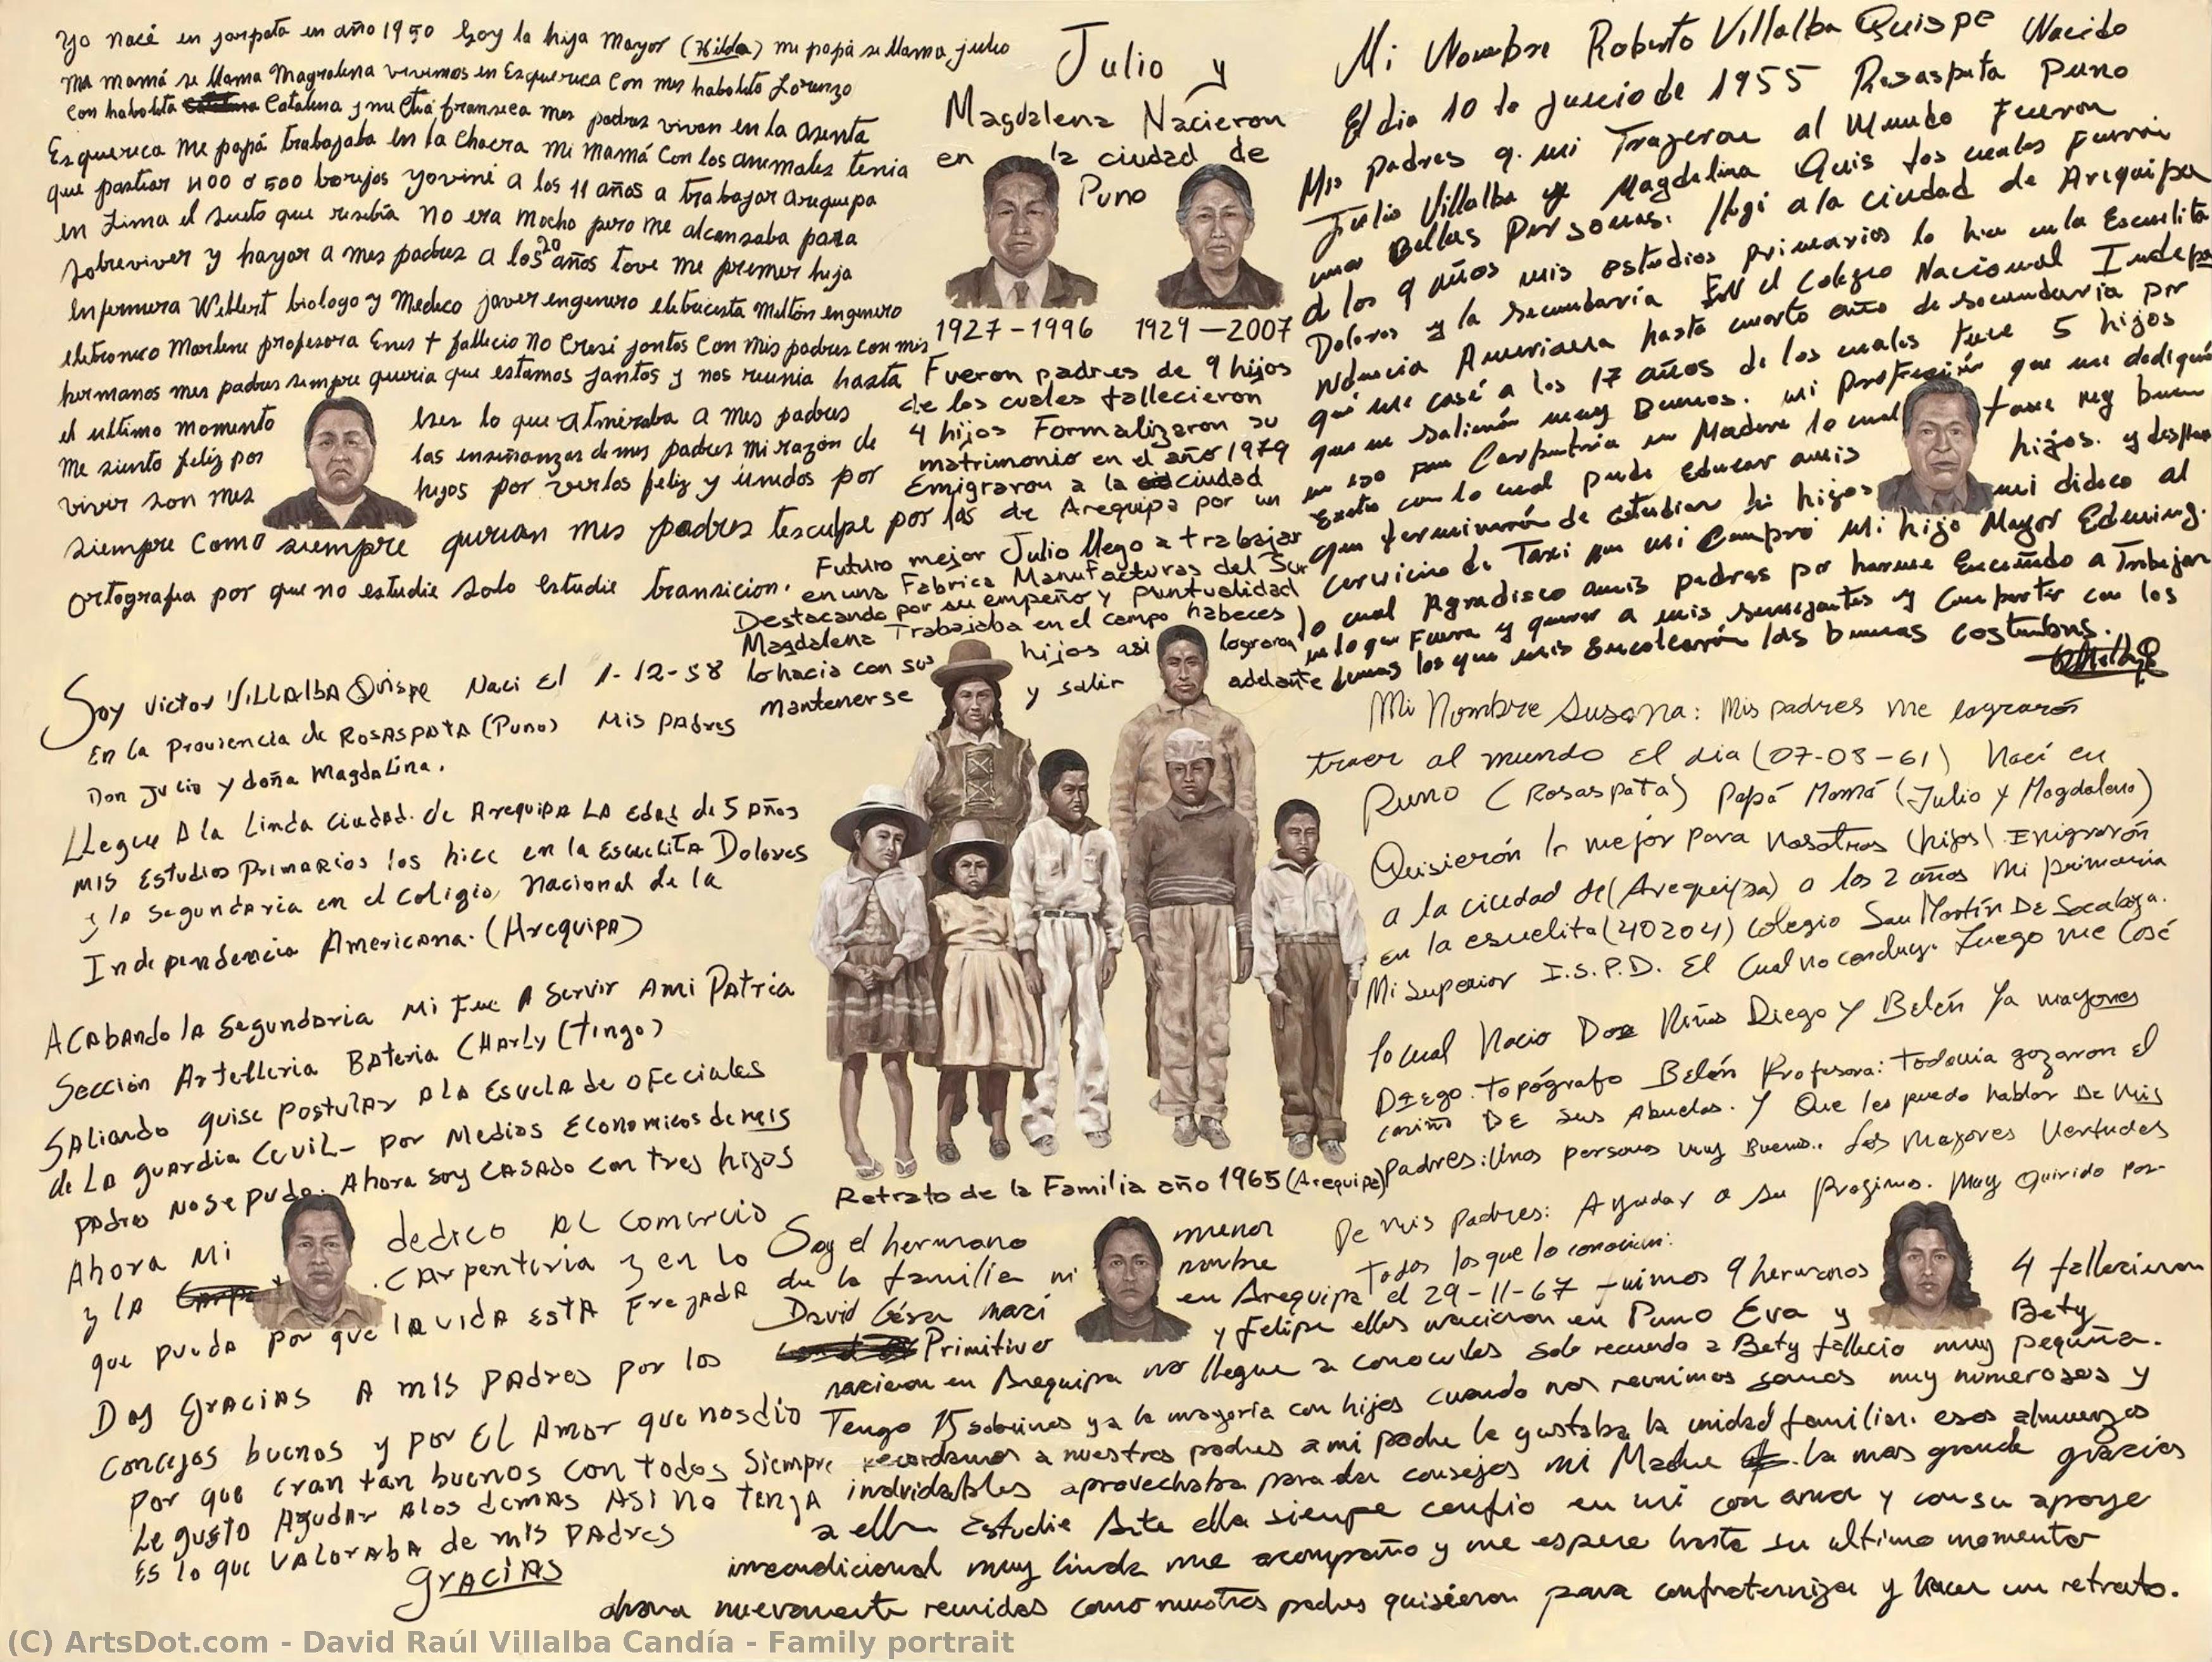 Yo nací en jospata en año 1950 Soy la hija Mayor (Hilda) mi papá se llama julio
mi mamá se llama Magdalena vivimos en Esquerica con mis habolito Lorenzo
con habolita Catalina y mi tia fransica mis padres vivan en la
Esquerica me papá trabajaba en la chacra mi mamá con los animales tenia
que pastiar 400 o 500 borijos yo vine a los 11 años a trabajar arequipa
en Lima el sueto que resibia no era mocho pero me alcansaba para
sobrevivir y hayar a mis padres a los 20 años tove me premer hija
Enfermera Wilbert biologo y Medeco javer engenero eletrecista Milton engenero
eletronico Marlene profesora Enes + fallecio No Cresi jontos con mis padres con mis
hermanos mes padres sempre queria que estamos jantos y nos reunia hasta
el ultimo momento
me siento feliz por
vivir son mes
eres lo que atmiraba a mes padres
las enseñanzas de mes padres mi razon de
hijos por verlos feliz y únidos por
siempre como siempre querian mes padres tesculpe por las
ortografia por que no estudie solo estudie transicion.
Julio y
Magdalena Nacieron
en la ciudad de
Puno
1927-1996 1929-2007
Fueron padres de 9 hijos
de los cuales fallecieron
4 hijos Formalizaron su
matrimonio en el año 1979
Emigraron a la ciudad
de Arequipa por un
Futuro mejor Julio llego a trabajar
en una Fabrica Manufacturas del Sur
Destacando por su empeño y puntualidad
Magdalena Trabajaba en el campo habeces
lo hacia con sus hijos asi lograron
mantenerse y salir adelante
Mi Nombre Roberto Villalba Quispe Nacido
El dia 10 de Junio de 1955 Rosaspata Puno
Mis padres q. mi Trajeron al Mundo Fueron
Julio Villalba y Magdalina Quis los cuales Fueron
unas Bellas Personas. llegi a la ciudad de Arequipa
a los 9 años mis estudios primarios lo hice en la Escuelita
Dolores y la Secundaria En el Colegio Nacional Indepe
ndencia Americana hasta cuarto año de secundaria por
qué me casé a los 17 años de los cuales tuve 5 hijos
que me salierón muy Buenos. mi profesión que me dediqué
en eso fue Carpinteria en Madera lo cual tuve muy buen
Exito con lo cual pude Educar a mis hijos. y despues
que terminarón de estudiar hijos mi dideco al
servicio de Taxi mi Compró Mi hijo Mayor Eduwing.
lo cual Agradisco a mis padres por harme Enceñado a Trabajar
en lo que Fuera y querer a mis semejantes y Compartir con los
demas los que mis Enculcarón las buenas costumbres.
Soy Victor Villalba Quispe Naci El 1-12-58
En la Proviencia de Rosaspata (Puno) Mis Padres
Don Julio y doña Magdalina.
Llegue A la Linda ciudad de Arequipa LA Edad de 5 Años
Mis Estudios Primarios los hice en la Escuelita Dolores
y la segundaria en el Coligio Nacional de la
Independencia Americana. (Arequipa)
Acabando la segundaria Mi Fue A Servir Ami Patria
Sección Artelleria Bateria Charly (Tingo)
Saliendo quise Postular A la Escuela de Ofeciales
de La Guardia Cevil- por Medios Economicos de mis
Padres No se pudo. Ahora soy Casado con tres hijos
Ahora Mi dedico AL comercio
y la carpenteria y en lo
que pueda por que la vida esta Fregada
Doy Gracias A mis padres por los
concejos buenos y por El Amor que nos dio
Por que eran tan buenos con todos Siempre
Le gusto Ayudar a los demas Asi no tenga
Es lo que valoraba de mis Padres
Gracias
Retrato de la Familia año 1965 (Arequipa)
Mi Nombre Susana: Mis padres me lograrón
traer al mundo El dia (07-03-61) Nací en
Puno (Rosaspata) Papá Mamá (Julio y Magdalena)
Quisierón lo mejor para Nosotros (hijos) Emigrarón
a la ciudad de (Arequipa) a los 2 años Mi primaria
en la escuelita (40204) Colegio San Martín De Socabaya.
Mi Superior I.S.P.D. El Cual no concluy. Luego me Casé
lo cual Nacio Dos Niños Diego Y Belén Ya mayores
Diego. Topógrafo Belén Profesora: Todavia gozaron el
cariño De sus Abuelos. Y Que les puedo hablar De Mis
Padres: Unas personas muy Buenas. Las Mayores Vertudes
De mis padres: Ayudar a Su Progimo. Muy Querido por
Todos los que lo conocian:
Soy el hermano menor
de la familia mi nombre
David César nací en Arequipa el 29-11-67 fuimos 9 hermanos 4 fallecieron
Primitivo y Felipe ellos nacieron en Puno Eva y Bety
nacieron en Arequipa no llegue a conocerles solo recuerdo a Bety fallecio muy pequeña.
Tengo 15 sobrinos ya la mayoria con hijos cuando nos reunimos somos muy numerosos y
recordamos a nuestros padres a mi padre le gustaba la unidad familiar. esos almuerzos
inolvidables aprovechaba para dar consejos mi Madre la mas grande gracias
a ella Estudie Arte ella siempre confio en mi con amor y con su apoyo
incondicional muy linda me acompaño y me espere hasta su ultimo momento
ahora nuevamente reunidos como nuestros padres quisieron para confraternizar y hacer un retrato.
(C) ArtsDot.com - David Raúl Villalba Candía - Family portrait